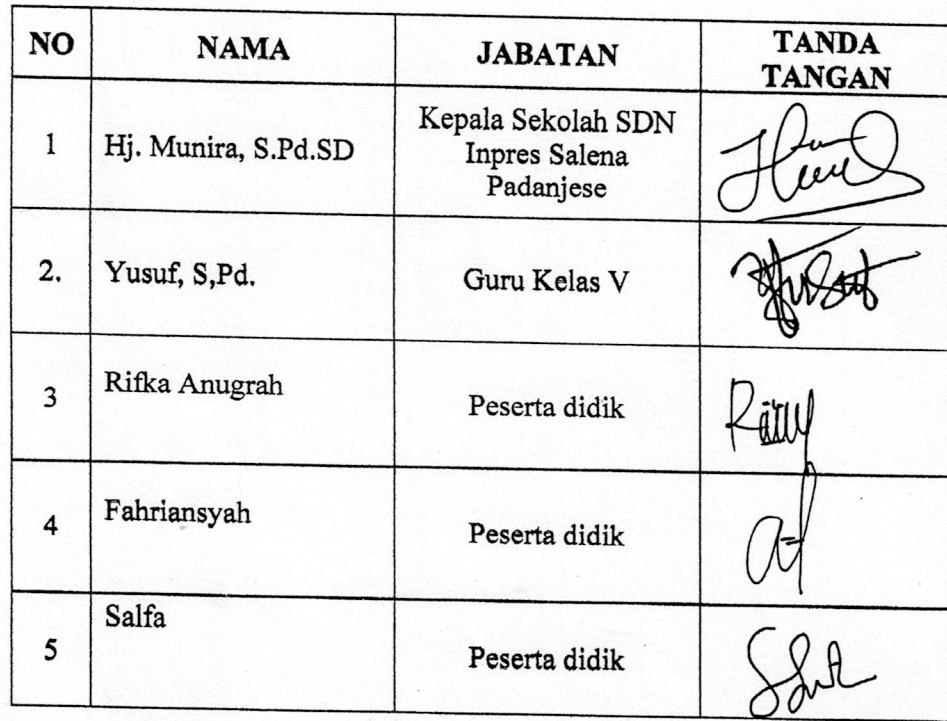 NO NAMA JABATAN TANDA
TANGAN
1 Hj. Munira, S.Pd.SD Kepala Sekolah SDN
Inpres Salena
Padanjese
2. Yusuf, S,Pd. Guru Kelas V
3 Rifka Anugrah Peserta didik
4 Fahriansyah Peserta didik
5 Salfa Peserta didik